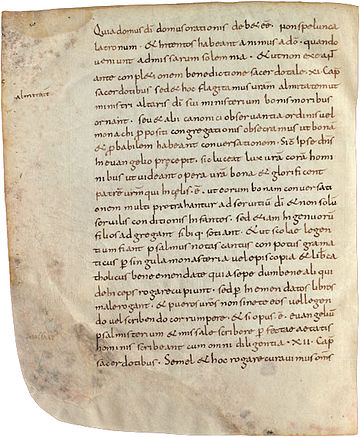 Quia domus dī domus orationis debet eē. non spelunca
latronum. & intentos habeant animus ad dm̄. quando
veniunt ad missarum solemnia. & ut non exeant
ante conpletionem benedictione sacerdotale. XI. Cap̄
sacerdotibus sed & hoc flagitamus uram almitatem ut
ministri altaris dī suum ministerium bonis moribus
ornant. seu & alii canonici observantia ordinis vel
monachi ꝓpositi congregationis obsecramus ut bona
& ꝓbabilem habeant conversationem. Sic ipse dn̄s
in evangelio precepit. sic luceat lux urā corā homi
nibus ut videant opera urā bona & glorificent
patrē urm̄ qui in celis. ē. ut eorum bonam conversati
onem multi pretrahantur ad servitiū dī & non solū
servilis conditionis infantes. sed & iam ingenuorū
filios adgregant sibiq. sotiant. & ut scolae legen
tium fiant psalmus notas cantus conpotus grama
ticus ꝑ singula monasteria vel episcopia & libros ca
tholicus bene emendate quia sepe dum bene ali qui
deinceps rogare cupiunt. sed ꝑ inemendatos libros
male rogant. & pueros uros non sinete eos vel legen
do vel scribendo corrumpere. & si opus. ē. evangeliū
psalmisterium & missale scribere ꝑfectae aetatis
hominis scribeant cum omni diligentia. XII. Cap̄
sacerdotibus. Semel & hoc rogare curavimus oms
almitate